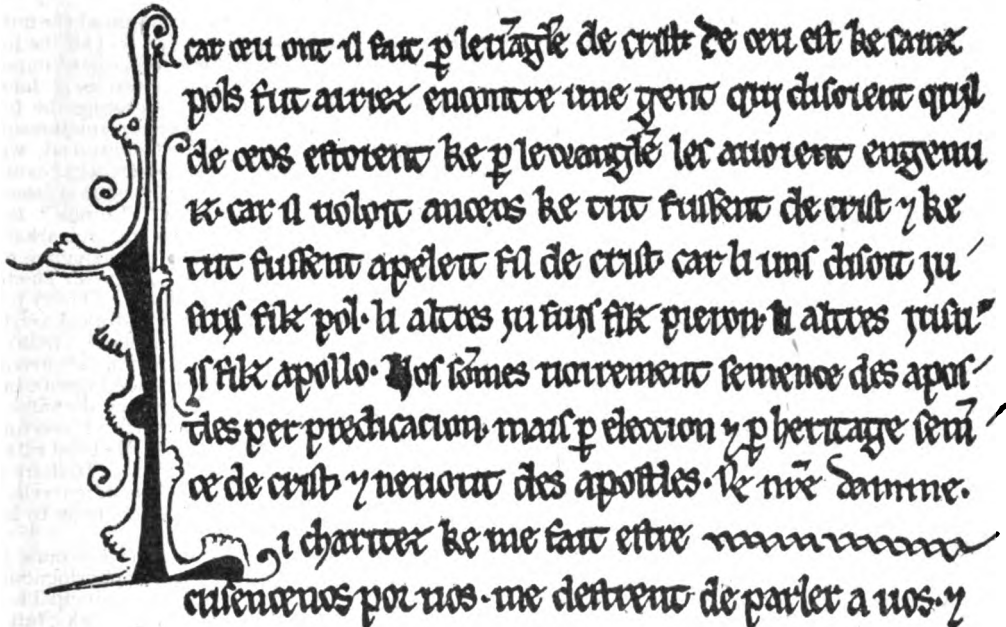 car ceu ont il fait p̱ leũagle de crist de ceu est ke sainz
pols fut airiez encontre une gent qui disoient quil
de ceos estoient ke p̱ lewangle les auoient engenu
iz. car il uoloit anceos ke tut fussent de crist ⁊ ke
tut fussent apeleit fil de crist car li uns disoit iu
suis filz pol. li altres iu suis filz pieron. li altres iu su
is filz apollo. Nos sõmes uoirement semence des apos
tles per predicacion. mais p̱ eleccion ⁊ p̱ heritage sem̃
ce de crist ⁊ neuout des apostles. de nr̃e damme.
Li charitez ke me fait estre
cusencenos por uos. me destrent de parler a uos. ⁊